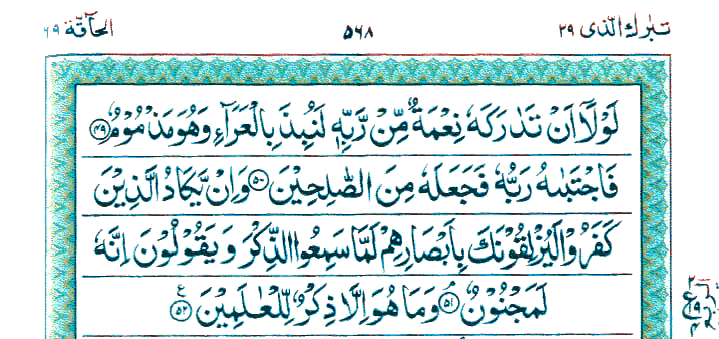 تبٰرك الّذى ٢٩ ٥٦٨ الحآقّة ٦٩
لَوْلَاۤ اَنْ تَدٰرَكَهٗ نِعْمَةٌ مِّنْ رَّبِّهٖ لَنُبِذَ بِالْعَرَآءِ وَهُوَ مَذْمُوْمٌ ﴿٤٩﴾
فَاجْتَبٰىهُ رَبُّهٗ فَجَعَلَهٗ مِنَ الصّٰلِحِيْنَ ﴿٥٠﴾ وَاِنْ يَّكَادُ الَّذِيْنَ
كَفَرُوْا لَيُزْلِقُوْنَكَ بِاَبْصَارِهِمْ لَمَّا سَمِعُوا الذِّكْرَ وَيَقُوْلُوْنَ اِنَّهٗ
لَمَجْنُوْنٌ ۘ﴿٥١﴾ وَمَا هُوَ اِلَّا ذِكْرٌ لِّلْعٰلَمِيْنَ ﴿٥٢﴾ ع